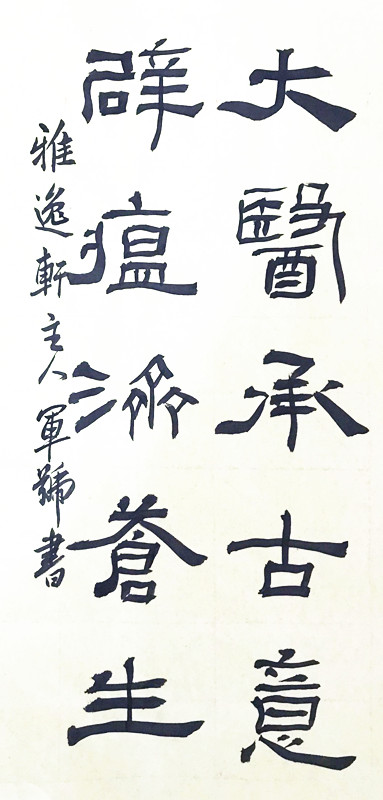 大醫承古意
辟瘟濟蒼生
雅逸軒主人軍號書